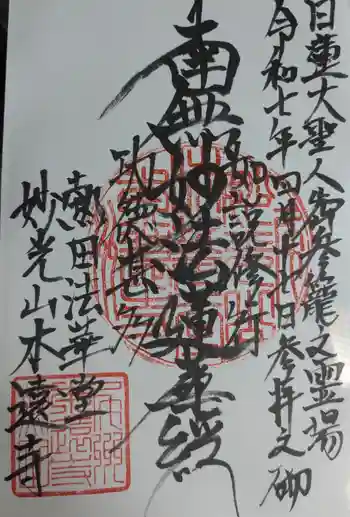 日蓮大聖人御参籠之霊場
令和七年四月廿七日参拝之砌
如説修行
南無妙法蓮華経
功徳甚多
熱田法華堂
妙光山本遠寺